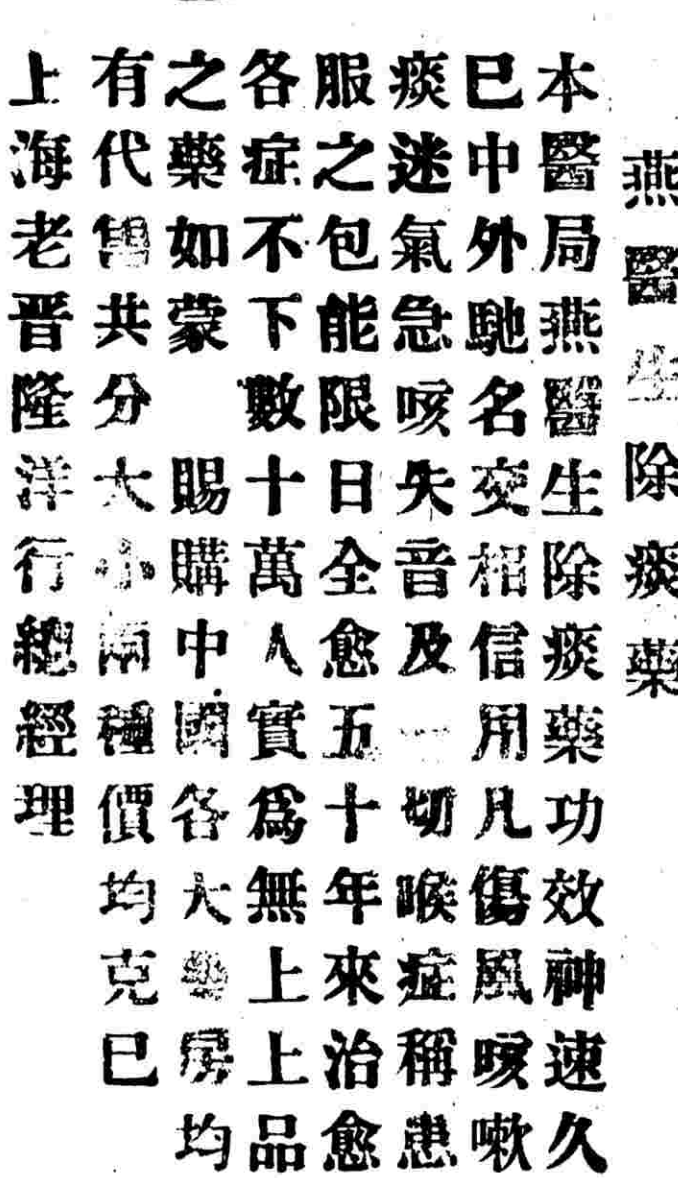 燕醫生除痰藥
本醫局燕醫生除痰藥功效神速久
已中外馳名交相信用凡傷風咳嗽
痰迷氣急咳失音及一切喉症稱患
服之包能限日全愈五十年來治愈
各症不下數十萬人實爲無上上品
之藥如蒙 賜購中國各大藥房均
有代售共分大小兩種價均克已
上海老晋隆洋行總經理